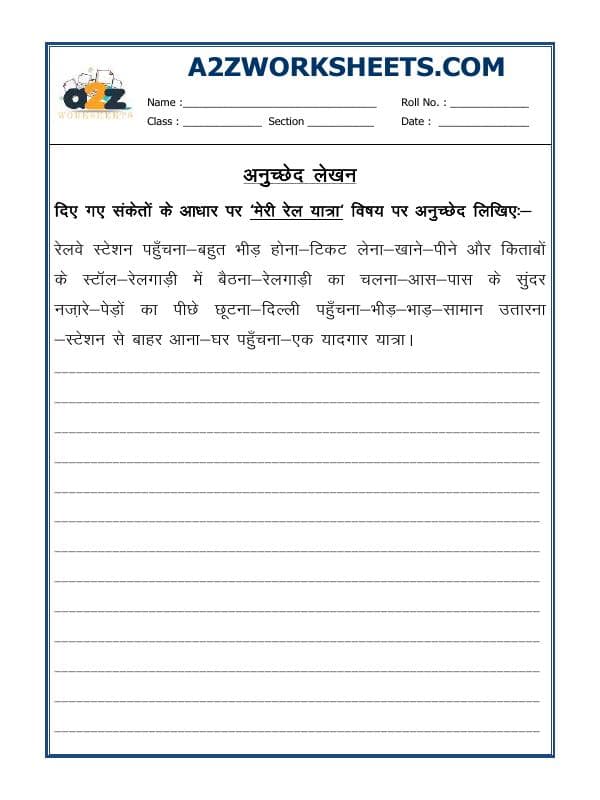 A2ZWORKSHEETS.COM
a2z
WORKSHEETS
Name :______________________________ Roll No. : ____________
Class : ____________ Section __________ Date : ______________
अनुच्छेद लेखन
दिए गए संकेतों के आधार पर ‘मेरी रेल यात्रा‘ विषय पर अनुच्छेद लिखिएः–
रेलवे स्टेशन पहुँचना–बहुत भीड़ होना–टिकट लेना–खाने–पीने और किताबों
के स्टॉल–रेलगाड़ी में बैठना–रेलगाड़ी का चलना–आस–पास के सुंदर
नजा़रे–पेड़ों का पीछे छूटना–दिल्ली पहुँचना–भीड़–भाड़–सामान उतारना
–स्टेशन से बाहर आना–घर पहुँचना–एक यादगार यात्रा।